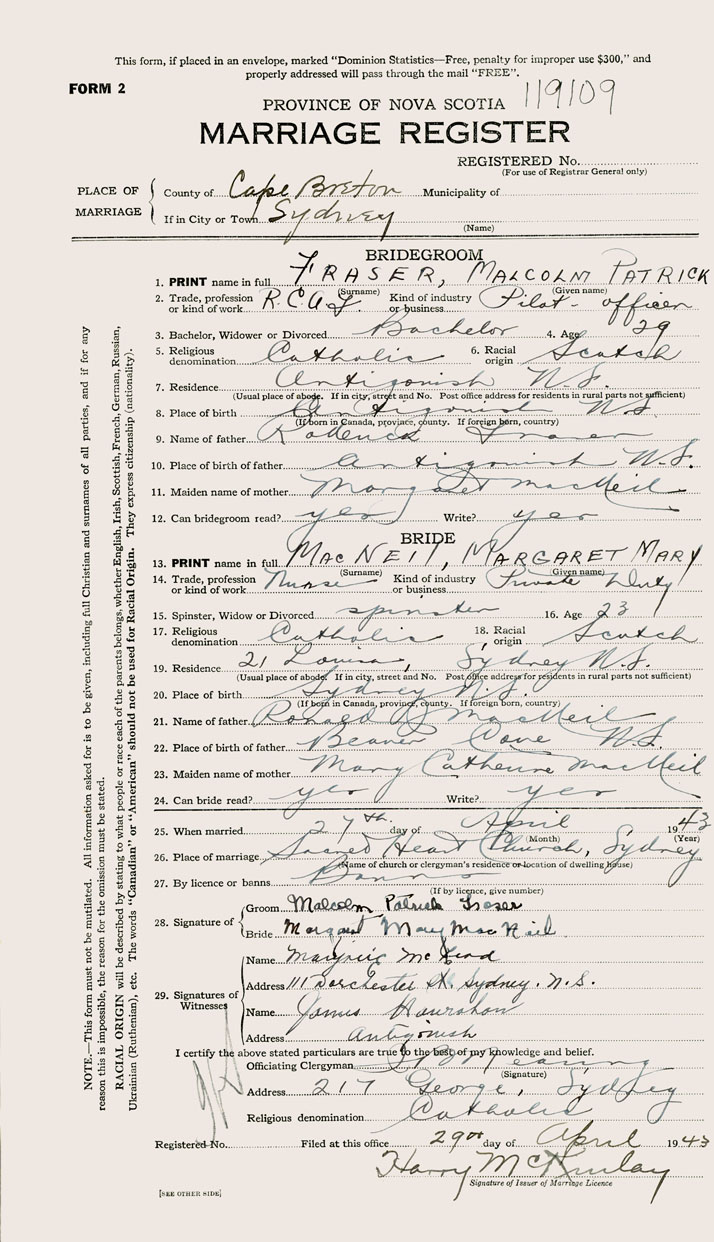 This form, if placed in an envelope, marked "Dominion Statistics—Free, penalty for improper use $300," and
properly addressed will pass through the mail "FREE".
FORM 2
PROVINCE OF NOVA SCOTIA 119109
MARRIAGE REGISTER
REGISTERED No.
(For use of Registrar General only)
PLACE OF MARRIAGE
County of Cape Breton Municipality of
If in City or Town Sydney
(Name)
BRIDEGROOM
1. PRINT name in full FRASER, MALCOLM PATRICK
(Surname) (Given name)
2. Trade, profession or kind of work R.C.A.F. Kind of industry or business Pilot - officer
3. Bachelor, Widower or Divorced Bachelor 4. Age 29
5. Religious denomination Catholic 6. Racial origin Scotch
7. Residence Antigonish N.S.
(Usual place of abode. If in city, street and No. Post office address for residents in rural parts not sufficient)
8. Place of birth Antigonish N.S.
(If born in Canada, province, county. If foreign born, country)
9. Name of father Roderick Fraser
10. Place of birth of father Antigonish N.S.
11. Maiden name of mother Margaret MacNeil
12. Can bridegroom read? yes Write? yes
BRIDE
13. PRINT name in full MACNEIL, MARGARET MARY
(Surname) (Given name)
14. Trade, profession or kind of work Nurse Kind of industry or business Private Duty
15. Spinster, Widow or Divorced spinster 16. Age 23
17. Religious denomination Catholic 18. Racial origin Scotch
19. Residence 21 Louisa, Sydney N.S.
(Usual place of abode. If in city, street and No. Post office address for residents in rural parts not sufficient)
20. Place of birth Sydney N.S.
(If born in Canada, province, county. If foreign born, country)
21. Name of father Ronald MacNeil
22. Place of birth of father Beaver Cove N.S.
23. Maiden name of mother Mary Catherine MacNeil
24. Can bride read? yes Write? yes
25. When married 27th day of April 1943
(Month) (Year)
26. Place of marriage Sacred Heart Church, Sydney
(Name of church or clergyman's residence or location of dwelling house)
27. By licence or banns Banns
(If by licence, give number)
28. Signature of
Groom Malcolm Patrick Fraser
Bride Margaret Mary MacNeil
29. Signatures of Witnesses
Name Marjorie
Address 111 Dorchester St. Sydney. N.S.
Name James Hanrahan
Address Antigonish
I certify the above stated particulars are true to the best of my knowledge and belief.
Officiating Clergyman
(Signature)
Address 217 George, Sydney
Religious denomination Catholic
Registered No. Filed at this office 29th day of April 1943
Harry McKinlay
Signature of Issuer of Marriage Licence
[SEE OTHER SIDE]
NOTE.—This form must not be mutilated. All information asked for is to be given, including full Christian and surnames of all parties, and if for any
reason this is impossible, the reason for the omission must be stated.
RACIAL ORIGIN will be described by stating to what people or race each of the parents belongs, whether English, Irish, Scottish, French, German, Russian,
Ukrainian (Ruthenian), etc. The words "Canadian" or "American" should not be used for Racial Origin. They express citizenship (nationality).